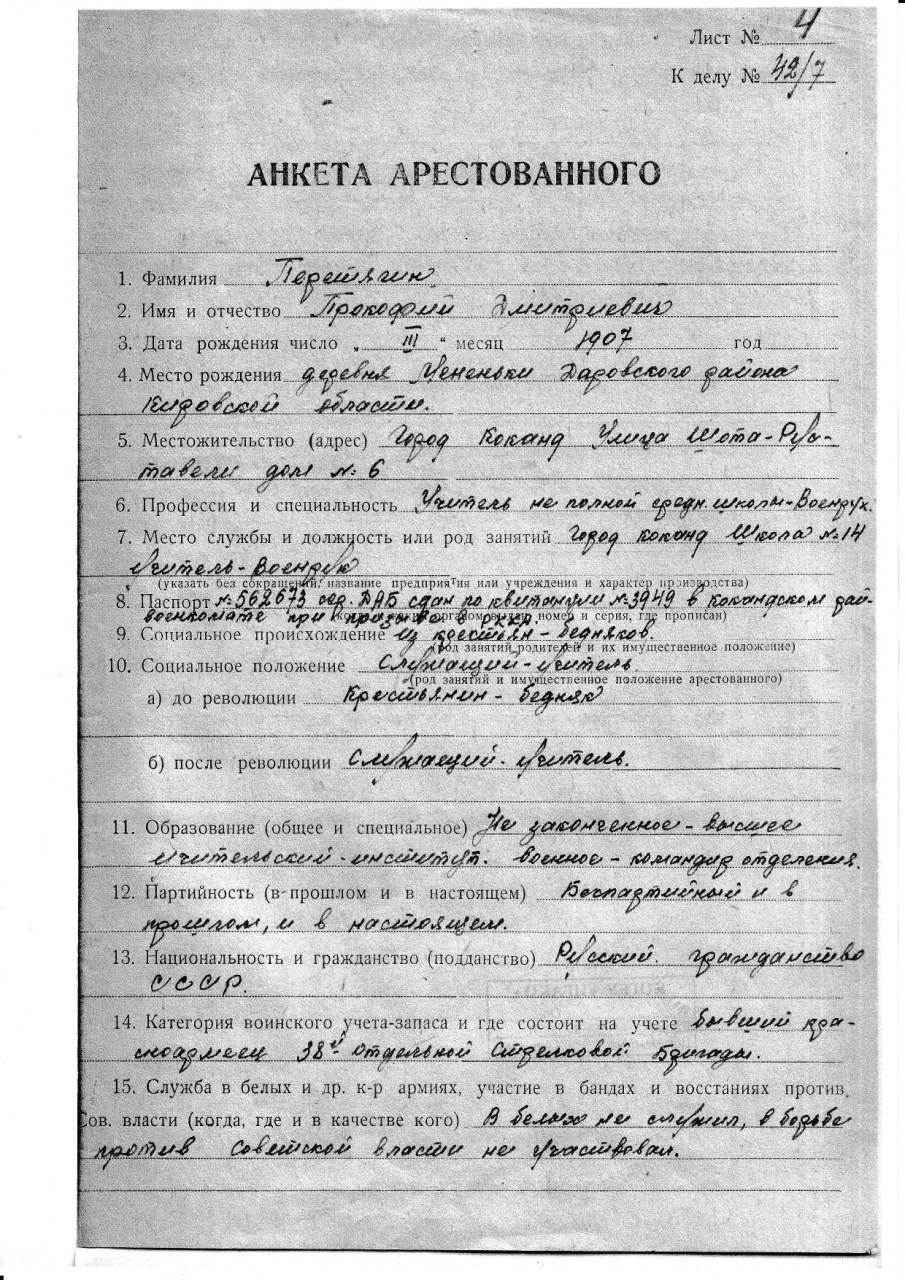 Лист № 4
К делу № 42/7
АНКЕТА АРЕСТОВАННОГО
1. Фамилия Перетягин
2. Имя и отчество Прокофий Дмитриевич
3. Дата рождения число „ III “ месяц 1907 год
4. Место рождения деревня Мененьки Даровского района
Кировской области.
5. Местожительство (адрес) Город Коканд Улица Шота-Рус-
тавели дом № 6
6. Профессия и специальность Учитель не полной средн. школы-Военрук.
7. Место службы и должность или род занятий Город Коканд Школа № 14
Учитель-Военрук
(указать без сокращений, название предприятия или учреждения и характер производства)
8. Паспорт № 562673 сер. ДАБ сдан по квитанции № 3949 в Кокандском рай-
военкомате при призыве в РККА.
(когда и каким органом выдан номер и серия, где прописан)
9. Социальное происхождение Из крестьян-бедняков.
(род занятий родителей и их имущественное положение)
10. Социальное положение Служащий-учитель
(род занятий и имущественное положение арестованного)
а) до революции Крестьянин-бедняк
б) после революции Служащий-учитель.
11. Образование (общее и специальное) Не законченное-высшее
Учительский-институт. военное-командир отделения.
12. Партийность (в прошлом и в настоящем) Беспартийный и в
прошлом, и в настоящем.
13. Национальность и гражданство (подданство) Русский. гражданство
СССР.
14. Категория воинского учета-запаса и где состоит на учете бывший кра-
сноармеец 38й отдельной Стрелковой Бригады.
15. Служба в белых и др. к-р армиях, участие в бандах и восстаниях против
Сов. власти (когда, где и в качестве кого) В белых не служил, в борьбе
против Советской власти не участвовал.